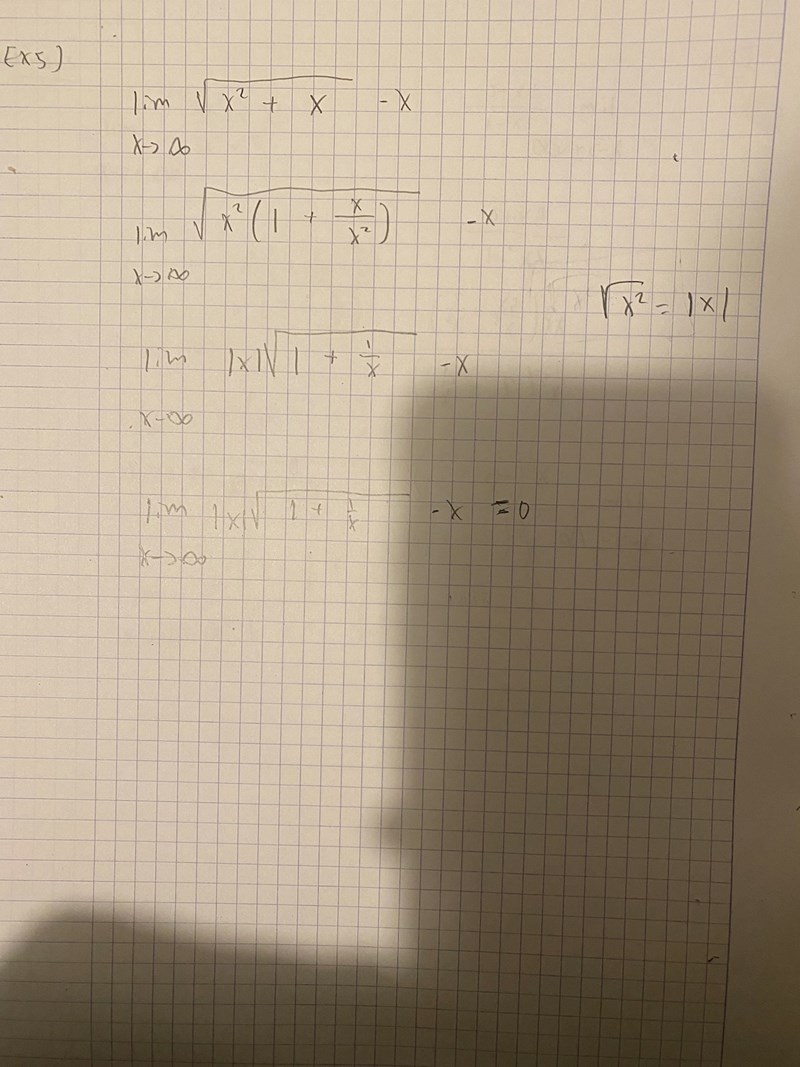 Ex5)
lim √(x² + x) - x
x→∞
lim √(x²(1 + x/x²)) - x
x→∞
√x² = |x|
lim |x|√(1 + 1/x) - x
x→∞
lim |x|√(1 + 1/x) - x = 0
x→∞